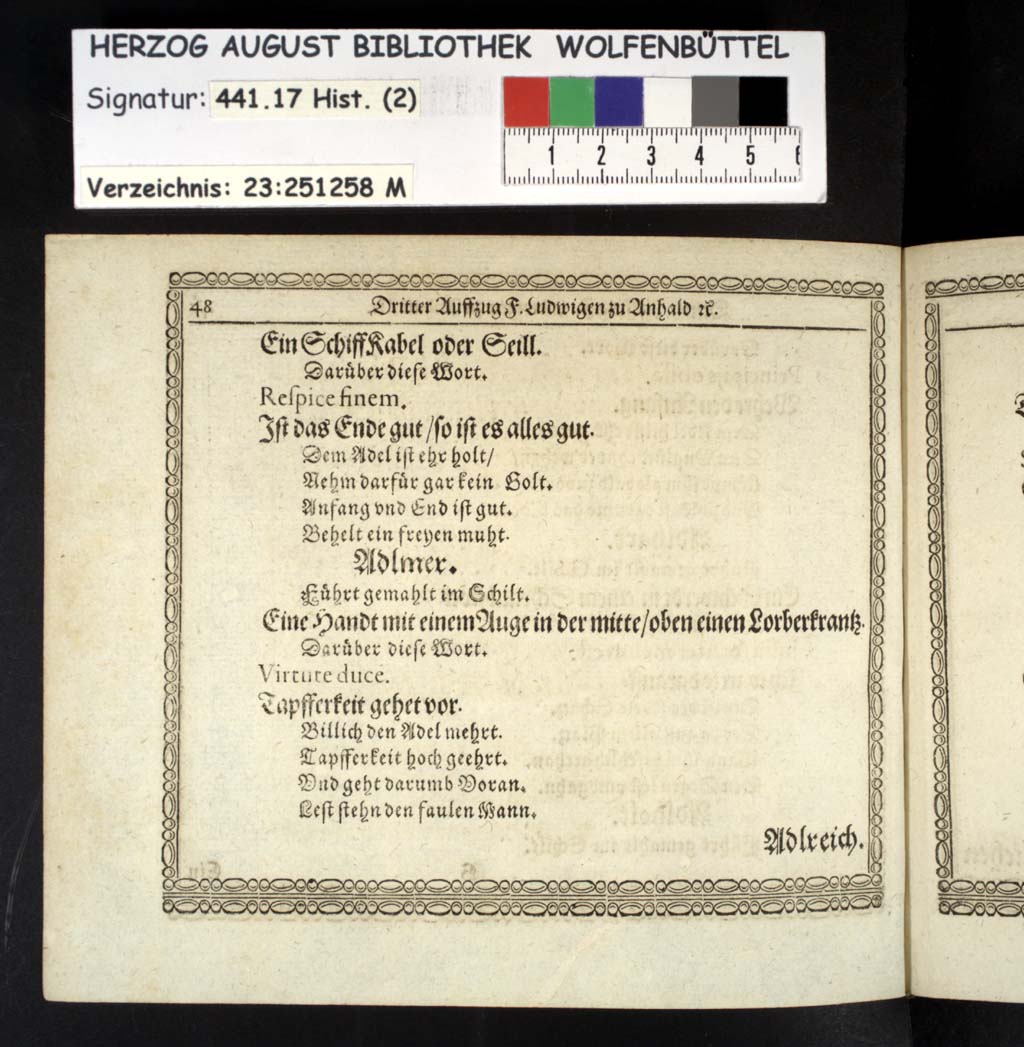 HERZOG AUGUST BIBLIOTHEK WOLFENBÜTTEL
Signatur: 441.17 Hist. (2)
Verzeichnis: 23:251258 M
1 2 3 4 5 6
48 Dritter Auffzug F. Ludwigen zu Anhald ꝛc.
Ein SchiffKabel oder Seill.
Darüber diese Wort.
Respice finem.
Ist das Ende gut / so ist es alles gut.
Dem Adel ist ehr holt /
Nehm darfür gar kein Golt.
Anfang vnd End ist gut.
Behelt ein freyen muht.
Adlmer.
Führt gemahlt im Schilt.
Eine Handt mit einem Auge in der mitte / oben einen Lorberkrantz.
Darüber diese Wort.
Virtute duce.
Tapfferkeit gehet vor.
Billich den Adel mehrt.
Tapfferkeit hoch geehrt.
Vnd geht darumb Voran.
Lest stehn den faulen Mann.
Adlreich.